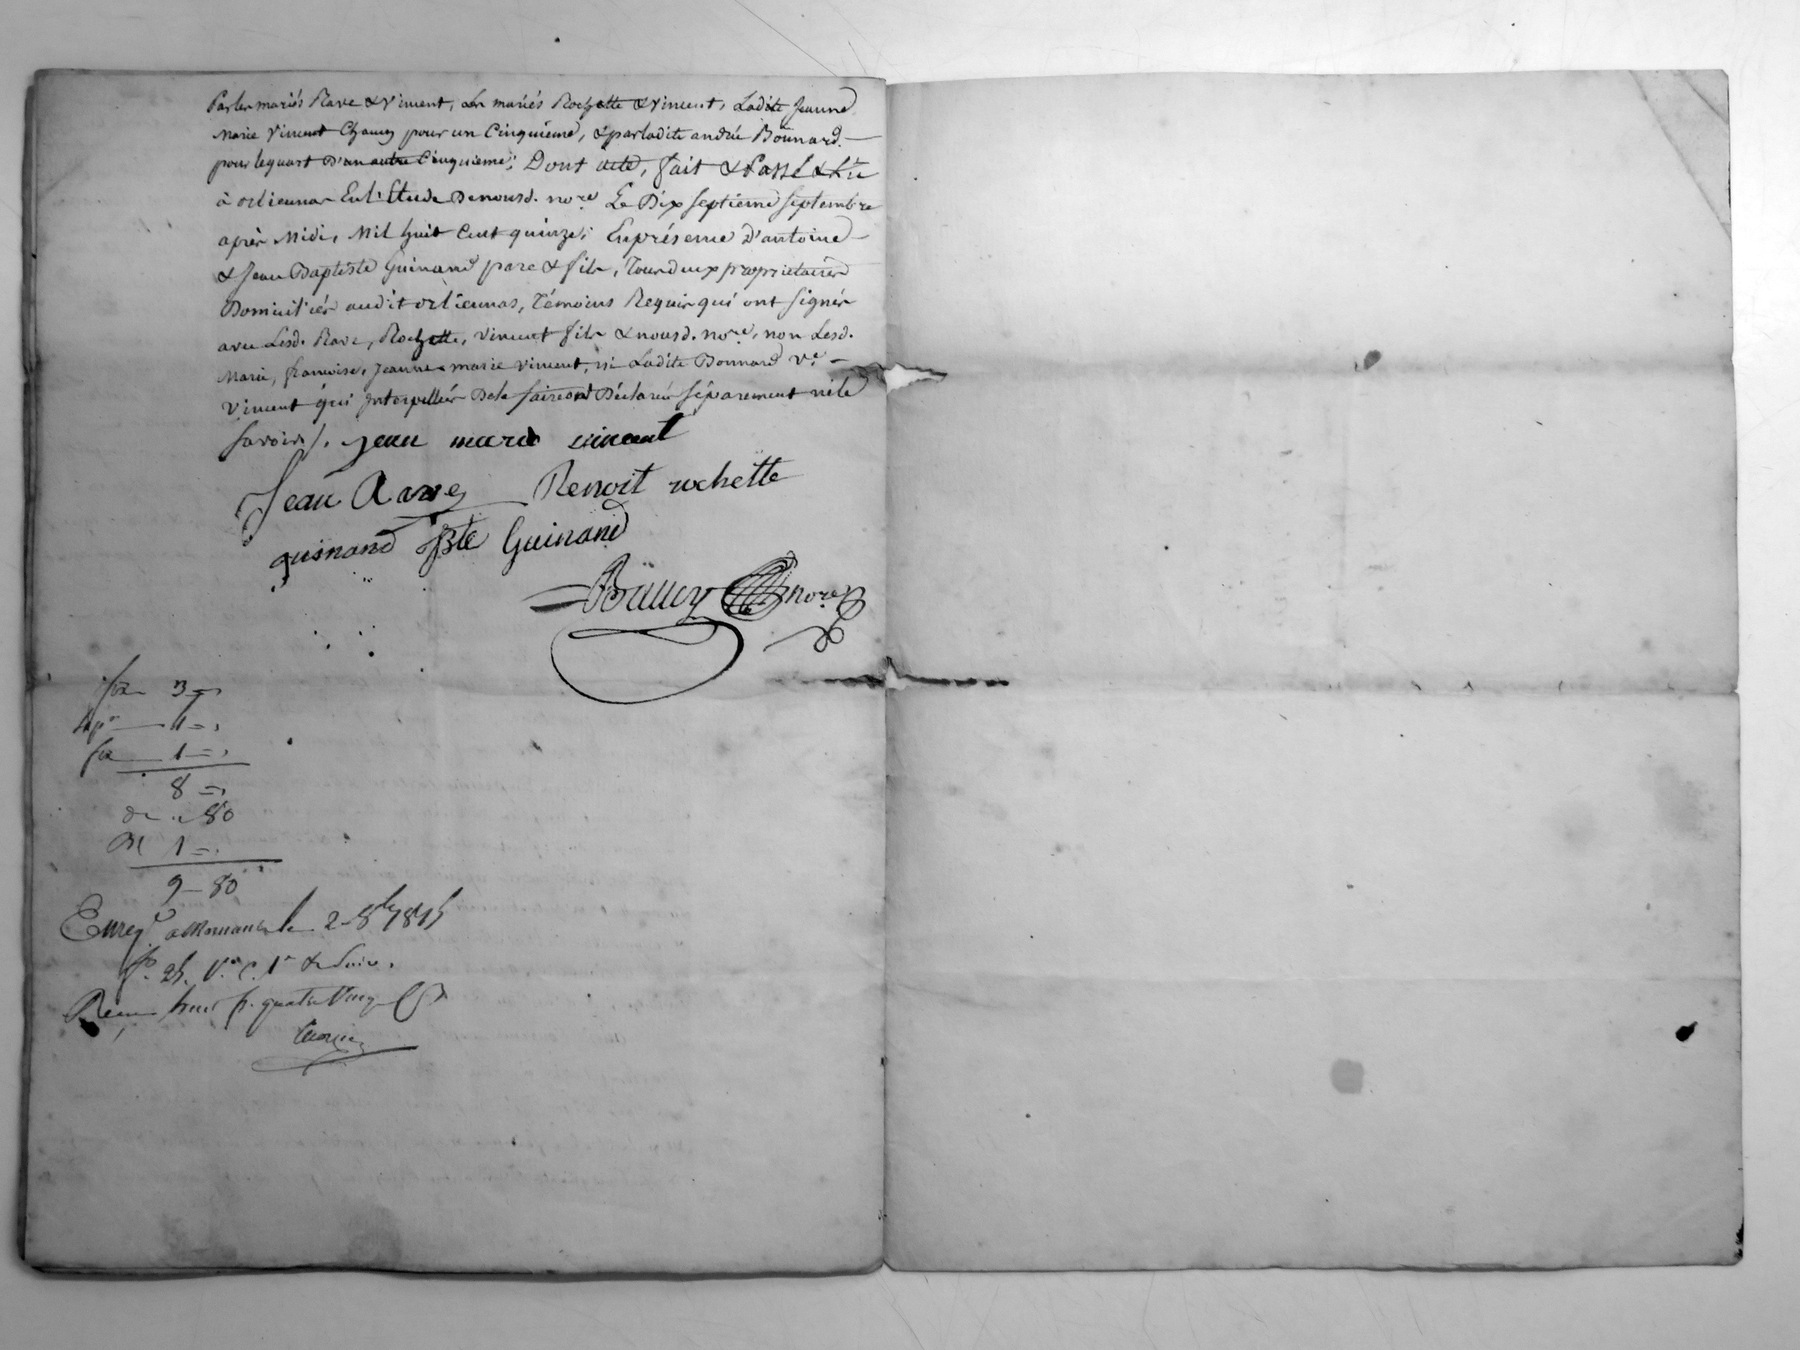 Par les mariés Rave & Vincent, les mariés Rochette & Vincent, Ladite Jeanne
Marie Vincent Chacun pour un Cinquième, & par ladite andrée Bonnard
pour le quart D'un autre Cinquième; Dont acte, fait & Passé & Lu
à orlienas En l'Etude De nousd. nore Le Dix septième septembre
après Midi, Mil huit Cent quinze; En présence D'antoine
& Jean Baptiste Guinand père & fils, Tous deux propriétaires
Domiciliés audit orlienas, Témoins Requis qui ont signés
avec Lesd. Rave, Rochette, Vincent fils & nousd. nore, non Lesd.
Marie, françoise, Jeanne marie Vincent, ni Ladite Bonnard Ve
Vincent qui Interpellées De le faire ont Déclarés séparément ne le
savoir/. jean marie vincent
Jean Rave Benoit rochette
guinand JBte Guinand
nore
3
1
1
8
80
1
9-80
Enregé a Mornant le 2 8bre 1815
fo. 25. Vo. C. 1re & suiv.
Reçu huit fr. quatre Vingt